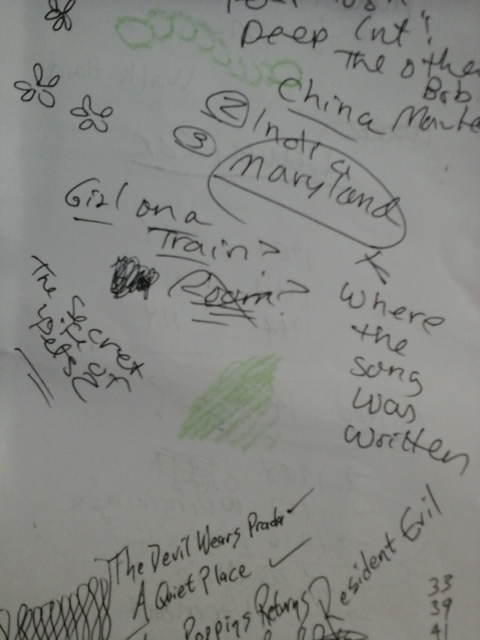 Deep Cut!
The othe
Bob
China
② India
③ Maryland
Girl on a
Train?
Room?
The Secret
life of
Pets
Where
the
song
was
written
The Devil Wears Prada ✓
A Quiet Place ✓
Poppins Returns
Resident Evil
33
39
41